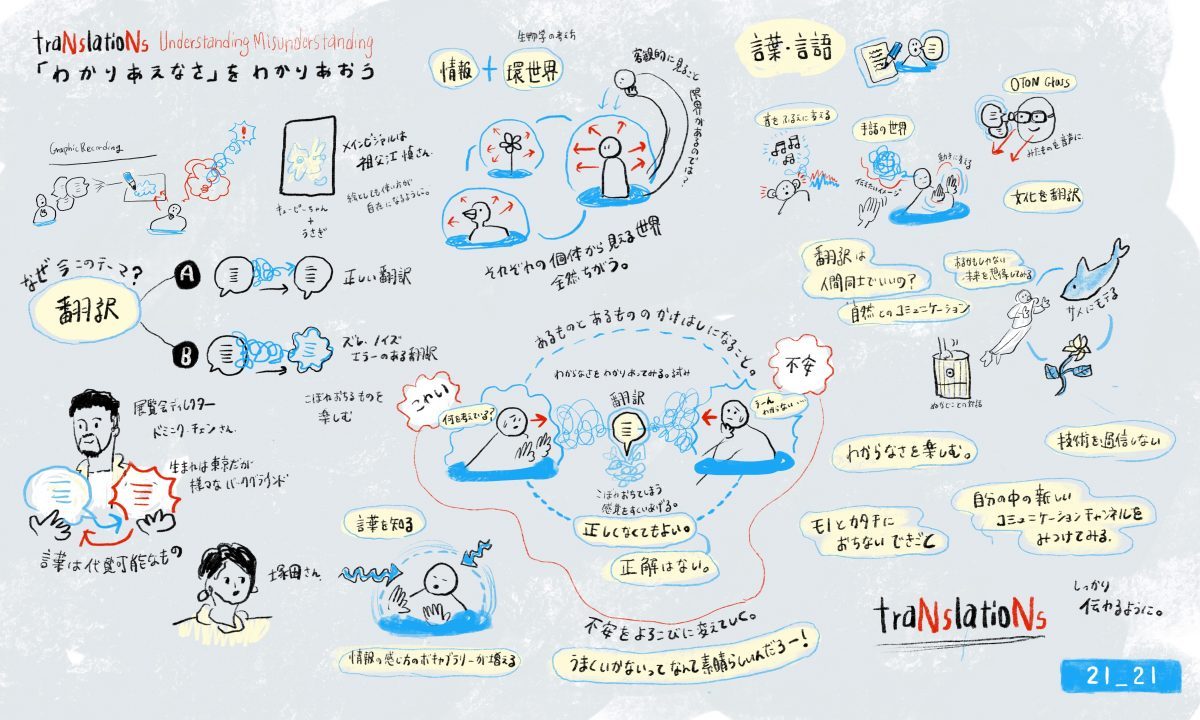 traNslatioNs Understanding Misunderstanding
「わかりあえなさ」をわかりあおう
Graphic Recording
メインビジュアルは
祖父江慎さん。
絵としても使い方が
自在になるように。
キューピーちゃん
+
うさぎ
なぜ今このテーマ?
翻訳
A
正しい翻訳
B
ズレ、ノイズ
エラーのある翻訳
こぼれおちるものを
楽しむ
展覧会ディレクター
ドミニク・チェンさん。
生まれは東京だが
様々なバックグラウンド
言葉は代替可能なもの
塚田さん
生物学の考え方
情報 + 環世界
客観的に見ること
限界があるのでは?
それぞれの個体から見える世界
全然ちがう。
あるものとあるもののかけはしになること。
わからなさをわかりあってみる。試み
こわい
何を考えてる?
翻訳
不安
うーん
わからない…
こぼれおちてしまう
感覚をすくいあげる。
正しくなくてもよい。
正解はない。
言葉を知る
情報の感じ方のボキャブラリーが増える
不安をよろこびに変えていく。
うまくいかないってなんて素晴らしいんだろー!
言葉・言語
音をふるえに変える
手話の世界
伝えたいイメージ
動きに変える
OTON Glass
みたものを音声に。
文化を翻訳
翻訳は
人間同士でいいの?
自然とのコミュニケーション
あるかもしれない
未来を想像してみる
サメにモテる
ぬかどことの対話
わからなさを楽しむ。
技術を過信しない
モノとカタチに
おちないできごと
自分の中の新しい
コミュニケーションチャンネルを
みつけてみる。
traNslatioNs
しっかり
伝わるように。
21_21